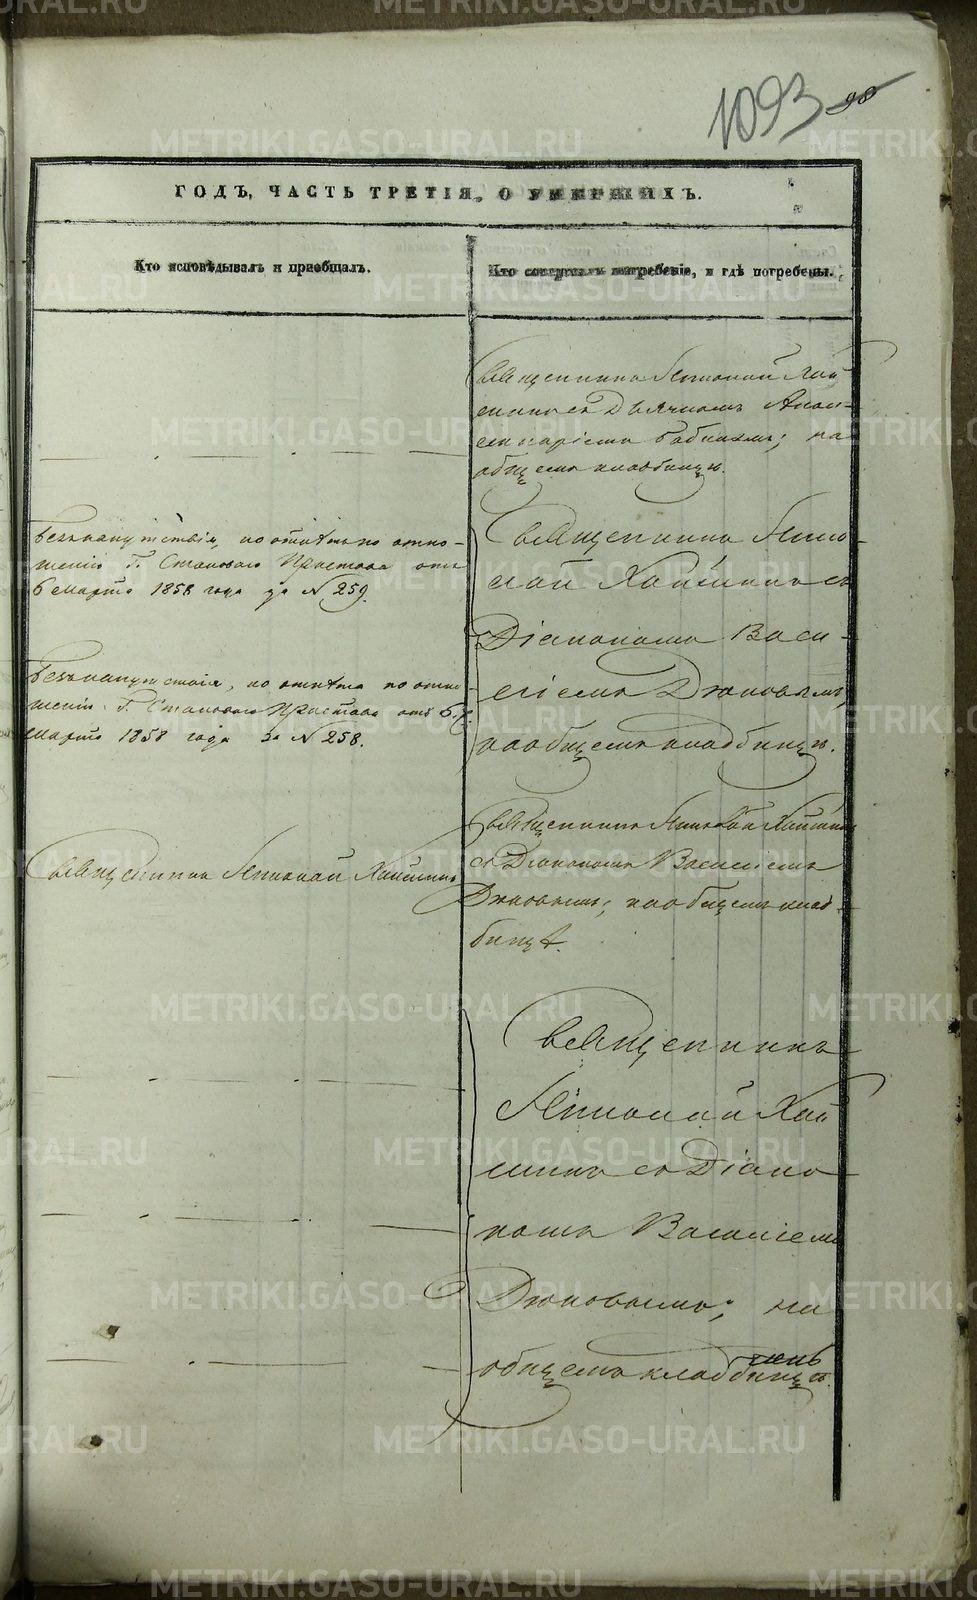 1093 98
ГОДЪ, ЧАСТЬ ТРЕТІЯ, О УМЕРШИХЪ.
Кто исповѣдывалъ и пріобщалъ.
Кто совершалъ погребеніе, и гдѣ погребены.
Священникъ Николай Хай
минъ съ Дьячкомъ Апол-
линаріемъ Бабинымъ; на
общемъ кладбищѣ.
Безъ напутствія, по отпѣтъ по отно-
шенію Г. Становаго Пристава отъ
6 марта 1858 года за N 259.
Священникъ Нико-
лай Хайминъ съ
Діакономъ Васи-
ліемъ Дюковымъ,
на общемъ кладбищѣ.
Безъ напутствія, по отпѣта по отно
шенію Г. Становаго Пристава отъ 6.
марта 1858 года за N 258.
Священникъ Николай Хайминъ
Священникъ Николай Хайминъ
съ Діакономъ Василіемъ
Дюковымъ; на общемъ клад-
бищѣ.
Священникъ
Николай Хай
минъ съ Діако
номъ Василіемъ
Дюковымъ; на
общемъ кладбищѣ.
METRIKI.GASO-URAL.RU